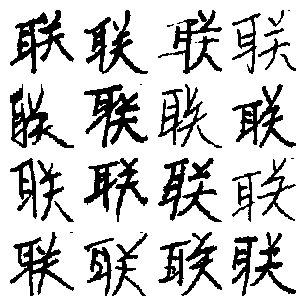 联联联联
联联联联
联联联联
联联联联